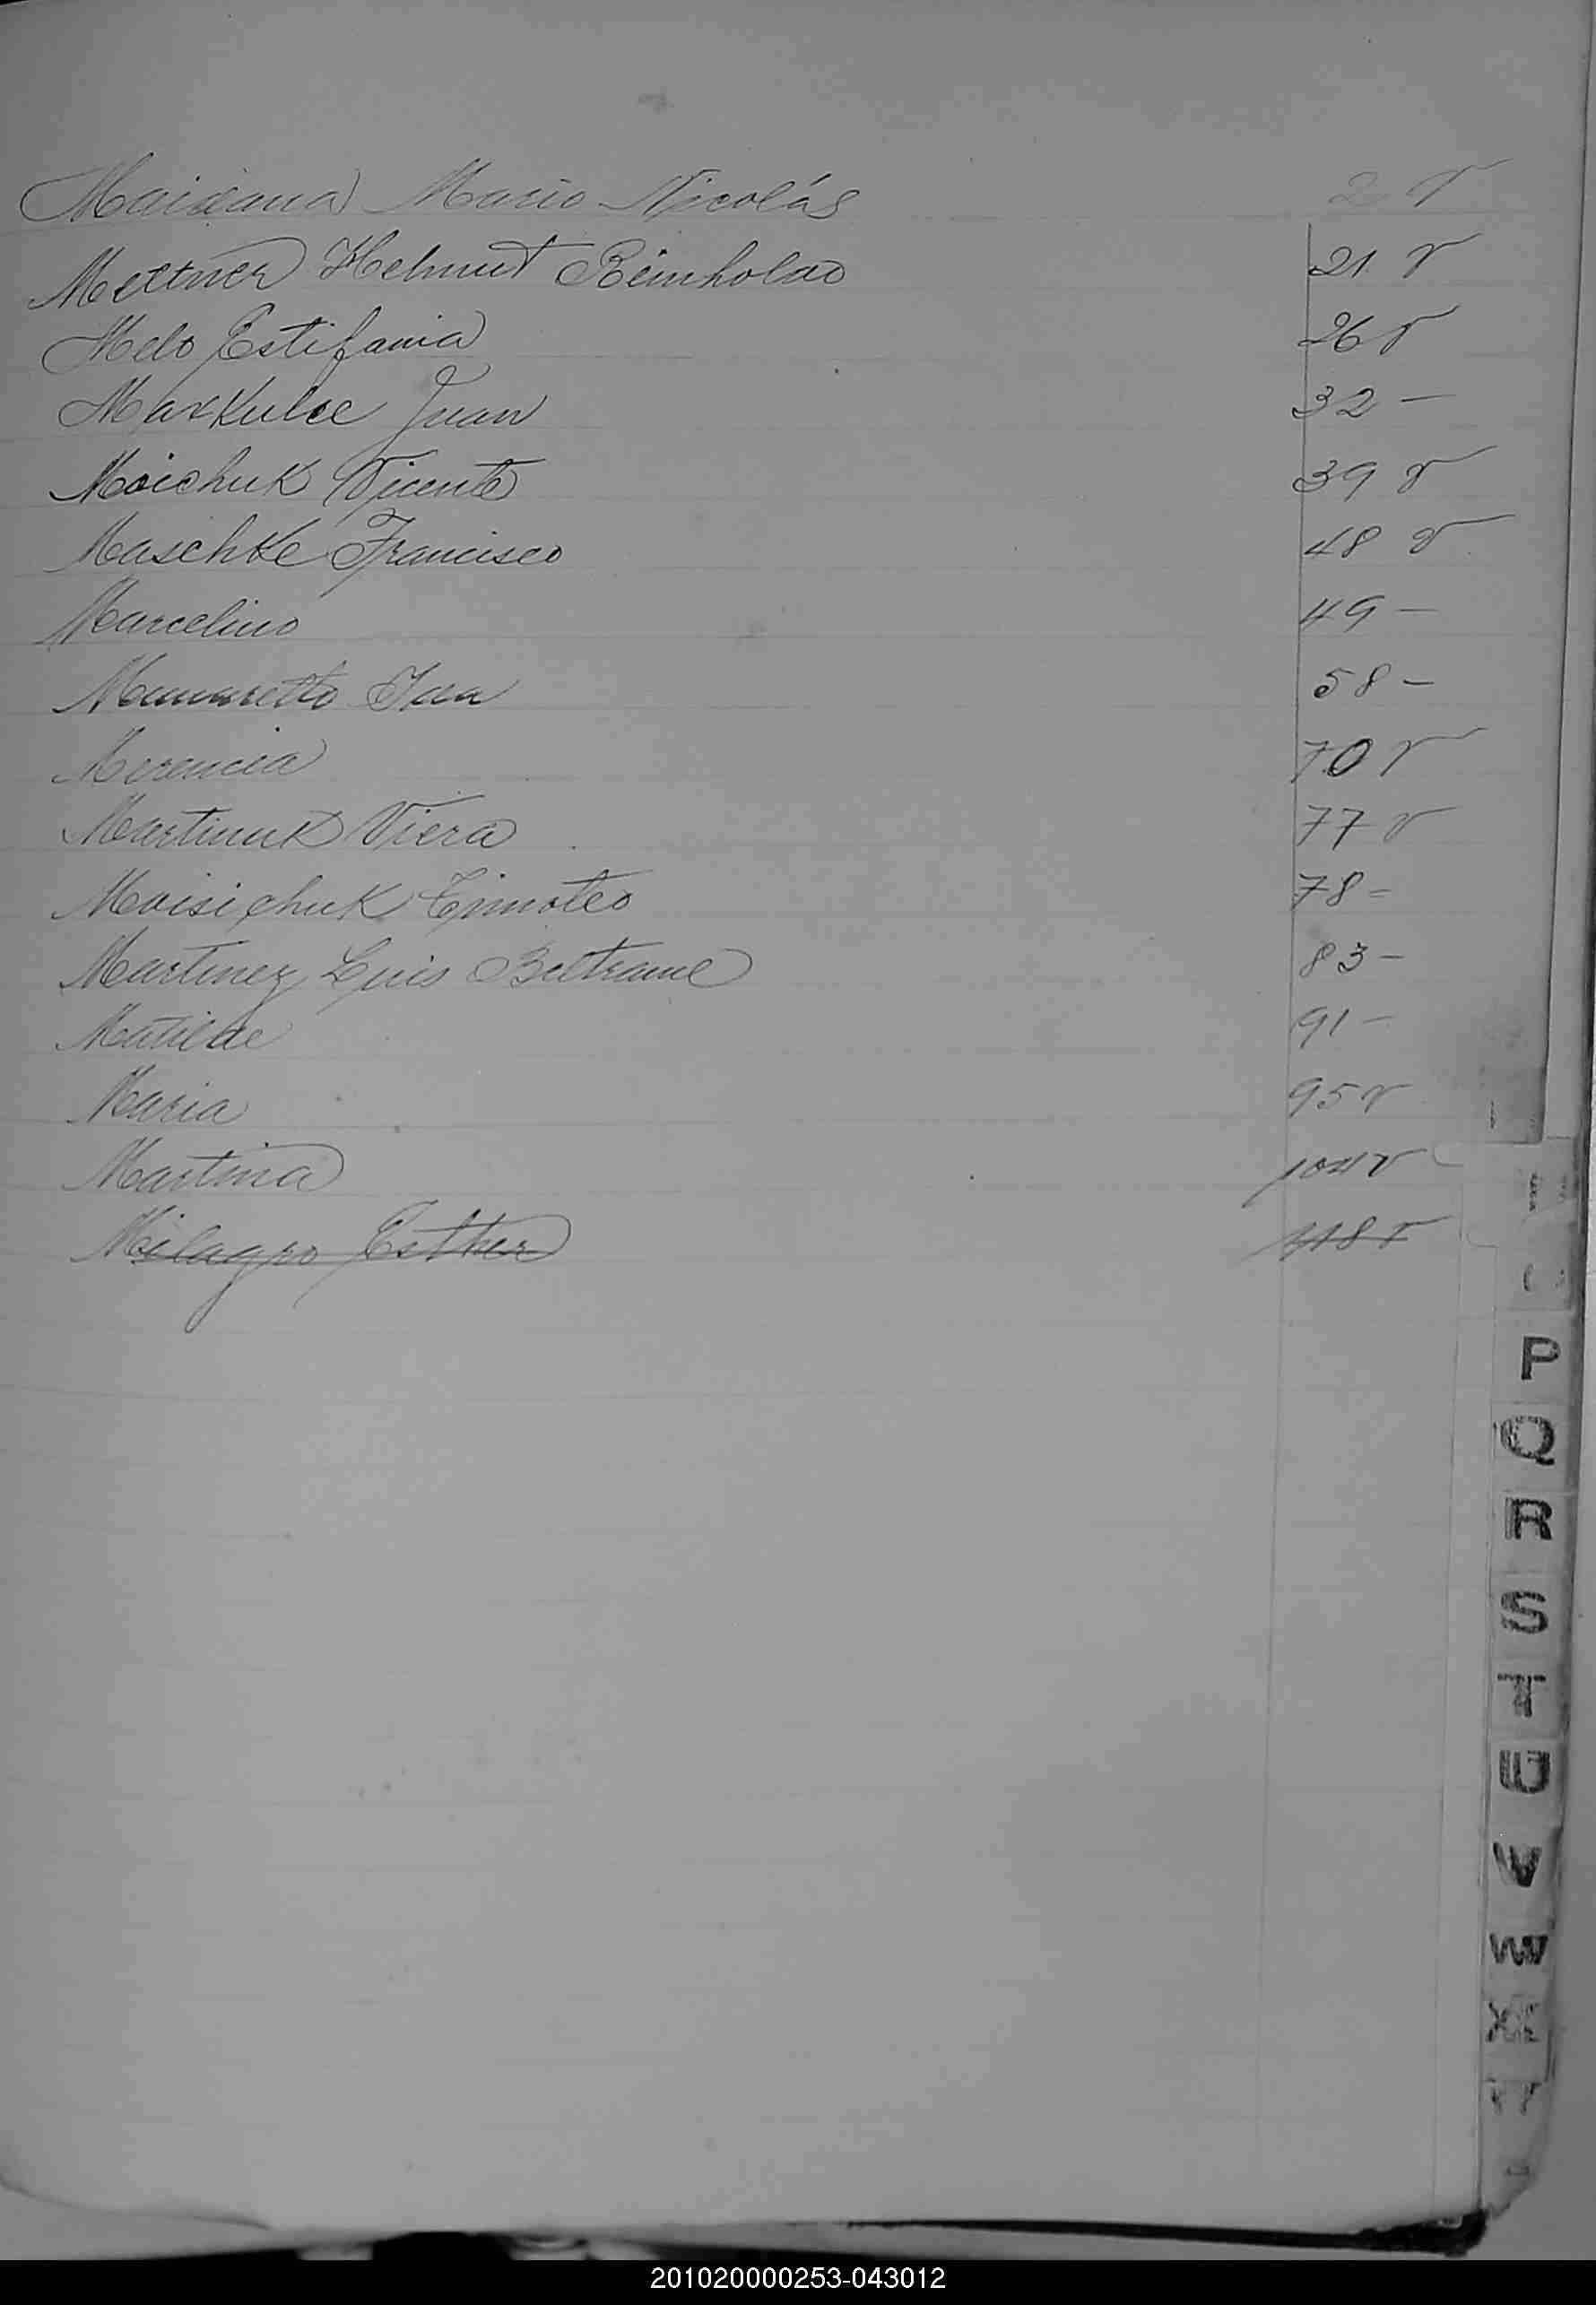 Maidana Mario Nicolás 2 v
Mettner Helmut Reinholdo 21 v
Melo Estifania 26 v
Markulce Juan 32 -
Moichuk Vicente 39 v
Maschke Francisco 48 v
Marcelino 49 -
Mamaretto Ida 58 -
Merencia 70 v
Martinuk Viera 77 v
Moisichuk Timoteo 78 =
Martinez Luis Beltrame 83 -
Matilde 91 -
Maria 95 v
Martina 104 v
Milagro Esther 118 v
P
Q
R
S
T
U
V
W
X
Y
201020000253-043012